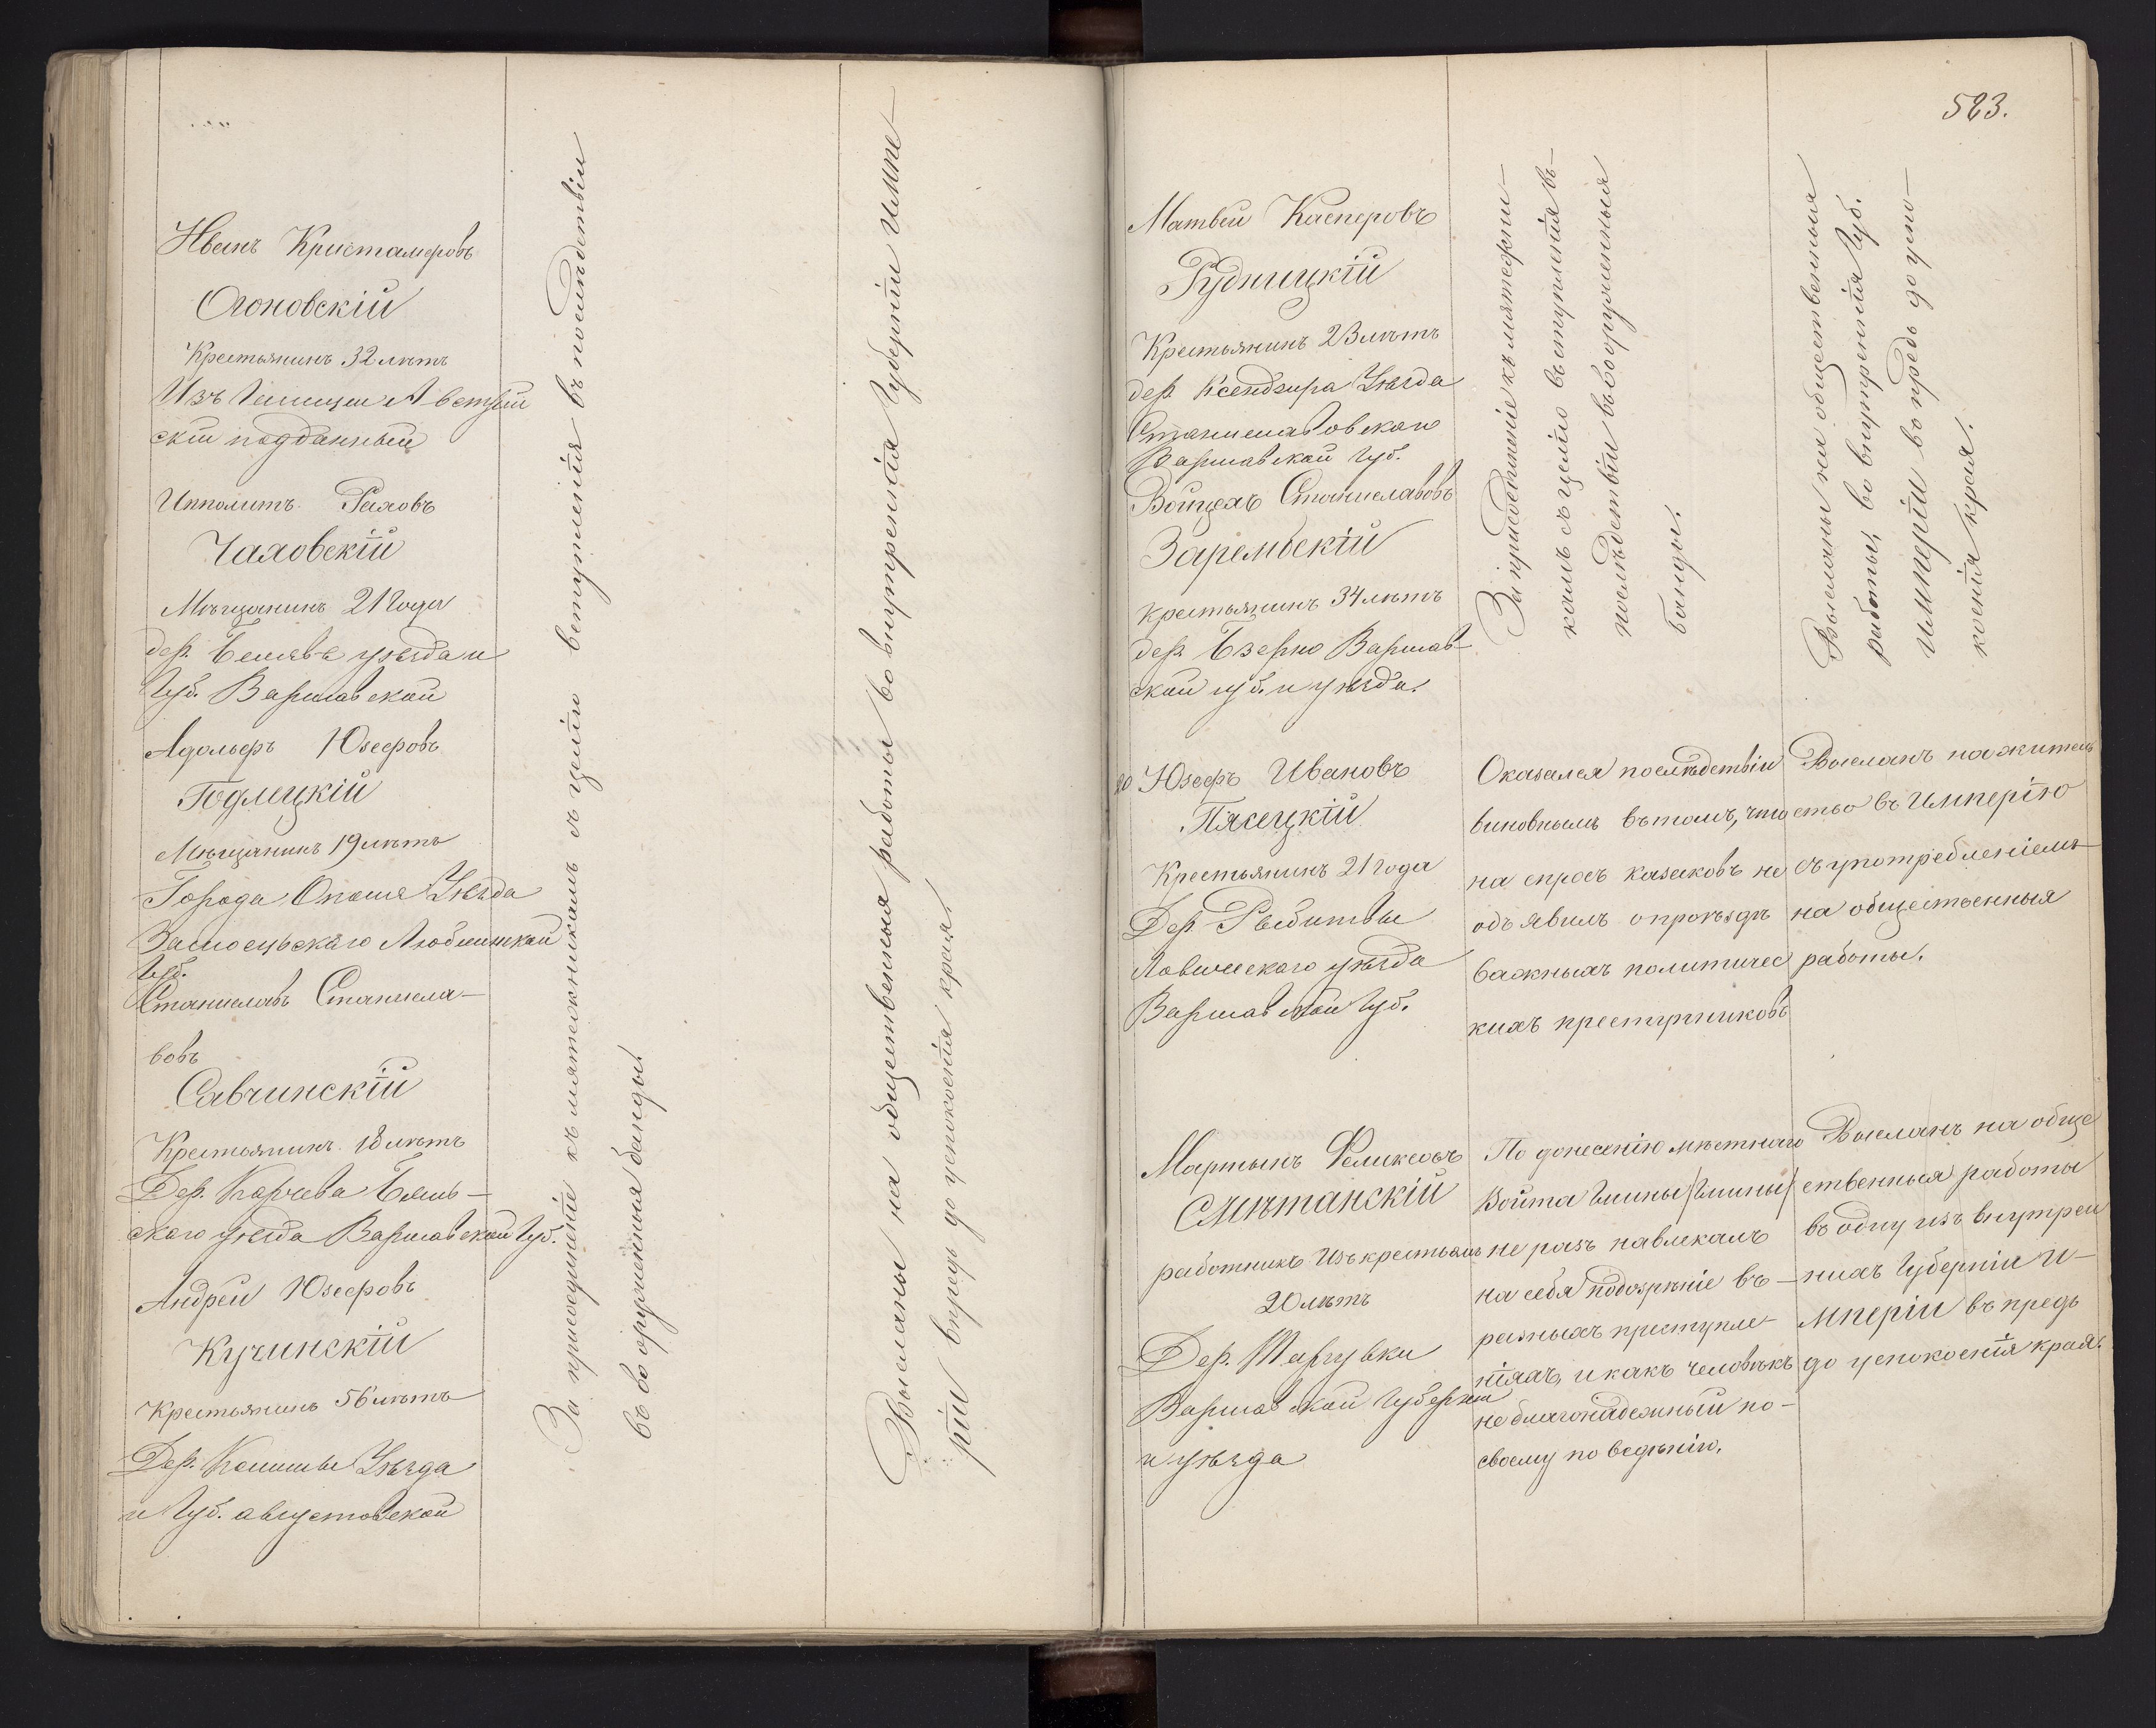 Иванъ Кристаперовъ
Огоновскій
Крестьянинъ 32 лѣтъ
Изъ Галиціи Австрій
скій подданный
Ипполитъ Раховъ
Чаховскій
Мѣщанинъ 21 года
дер. уѣзда и
Губ. Варшавской
Адольфъ Юзефовъ
Годлецкій
Мѣщанинъ 19 лѣтъ
Города Уѣзда
Замосцьскаго Люблинской
Губ.
Станиславъ Станисла-
вовъ
Савчинскій
Крестьянинъ 18 лѣтъ
Дер. Карчева
скаго уѣзда Варшавской Губ.
Андрей Юзефовъ
Кучинскій
Крестьянинъ 56 лѣтъ
Дер. Уѣзда
и Губ. августовской
За присоединеніе къ мятежникамъ съ цѣлію вступленія въ послѣдствіи
въ вооруженныя банды.
Высланы на общественныя работы во внутреннія Губерніи Импе-
ріи впредь до успокоенія края.
523.
Матвѣй Касперовъ
Рудницкій
Крестьянинъ 23 лѣтъ
дер. Уѣзда
Станиславовскаго
Варшавской Губ.
Войцехъ Станиславовъ
Зарембскій
крестьянинъ 34 лѣтъ
дер. Варшав-
ской губ. и уѣзда.
За присоединеніе къ мятежни-
камъ съ целію вступленія въ-
послѣдствіи въ вооруженныя
банды.
Высланы на общественныя
работы, во внутреннія Губ.
Имперіи вопредь до успо-
коенія края.
20 Юзефъ Ивановъ
Пясецкій
Крестьянинъ 21 года
Дер. Рыбитвы
Ловичскаго уѣзда
Варшавской Губ.
Оказался послѣдствіи
виновнымъ въ томъ, что
на спросъ казаковъ не
объявилъ о проѣздѣ
важныхъ политичес
кихъ преступниковъ
Высланъ на житель
ство въ Имперію
съ употребленіемъ
на общественныя
работы.
Мартынъ Феликсовъ
Смѣтанскій
работникъ изъ крестьянъ
20 лѣтъ
Дер. Таргувки
Варшавской Губерніи
и уѣзда
По донесенію мѣстнаго
Войта Гмины /Гмины/
не разъ навлекалъ
на себя подозрѣніе въ-
разныхъ преступле-
ніяхъ, и какъ человѣкъ
не благонадежный по-
своему поведѣнію.
Высланъ на обще
ственныя работы
въ одну изъ внутрен
нихъ Губерніи И-
мперіи въ предь
до успокоенія края.